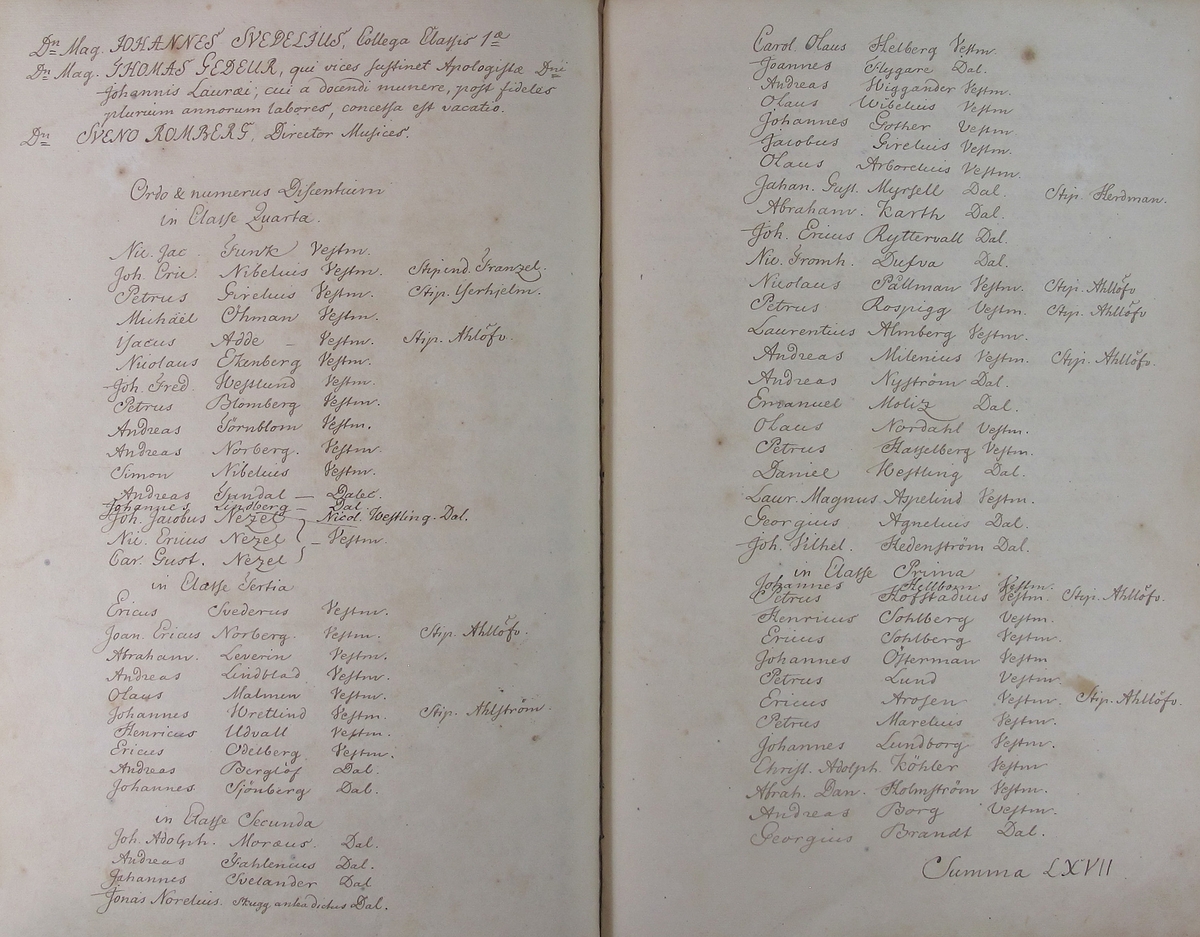 Dn Mag. JOHANNES SVEDELIUS, Collega Classis 1æ
Dn Mag. THOMAS GEDEUR, qui vices sustinet Apologistæ Dni
Johannis Lauræi; cui a docendi munere, post fideles
plurium annorum labores, concessa est vacatio.
Dn SVENO ROMBERG, Director Musices.
Ordo & numerus Discentium
in Classe Quarta.
Nic. Jac. Funk Vestm.
Joh. Eric. Nibelius Vestm. Stipend. Franzel.
Petrus Girelius Vestm. Stip. Yerhjelm.
Michäel Öhman Vestm.
Isacus Adde – Vestm. Stip. Ahllöfv.
Nicolaus Ekenberg Vestm.
Joh. Fred. Westlund Vestm.
Petrus Blomberg Vestm.
Andreas Törnblom Vestm.
Andreas Norberg. Vestm.
Simon Nibelius Vestm.
Andreas Sandal – Dalec.
Johannes Lindberg – Dal.
Joh. Jacobus Nezel Nicol. Westling. Dal.
Nic. Ericus Nezel – Vestm.
Car. Gust. Nezel
in Classe Tertia
Ericus Svederus Vestm.
Joan. Ericus Norberg. Vestm. Stip. Ahllöfv.
Abraham. Leverin Vestm.
Andreas Lindblad Vestm.
Olaus Malmen Vestm.
Johannes Wretlind Vestm. Stip. Ahlström.
Henricus Udvall Vestm.
Ericus Odelberg Vestm.
Andreas Berglöf Dal.
Johannes Sjönberg Dal.
in Classe Secunda
Joh. Adolph. Moræus. Dal.
Andreas Fahlenius Dal.
Johannes Svelander Dal
Jonas Norelius. Skugg antea dictus Dal.
Carol. Olaus Helberg Vestm.
Joannes Flygare Dal.
Andreas Wiggander Vestm.
Olaus Wibelius Vestm
Johannes Gother Vestm.
Jacobus Girelius Vestm.
Olaus Arborelius Vestm.
Johan. Gust. Myrsell Dal. Stip. Herdman.
Abraham. Karth Dal.
Joh. Ericus Ryttervall Dal.
Nic. Tromh. Dufva Dal.
Nicolaus Pållman Vestm. Stip. Ahllöfv
Petrus Rospigg Vestm. Stip. Ahllöfv
Laurentius Almberg Vestm.
Andreas Milenius Vestm. Stip. Ahllöfv.
Andreas Nyström Dal.
Emanuel Moliz Dal.
Olaus Nordahl Vestm.
Petrus Hasselberg Vestm.
Daniel Westling Dal.
Laur. Magnus Aspelind Vestm.
Georgius Agnelius Dal.
Joh. Vilhel. Hedenström Dal.
in Classe Prima
Johannes Hellbom Vestm.
Petrus Hoffstadius Vestm. Stip. Ahllöfv.
Henricus Sohlberg Vestm.
Ericus Sohlberg Vestm.
Johannes Österman Vestm
Petrus Lund Vestm
Ericus Arosen Vestm. Stip. Ahllöfv.
Petrus Marelius Vestm.
Johannes Lundborg Vestm.
Christ. Adolph. Köhler Vestm
Abrah. Dan. Holmström Vestm.
Andreas Borg Vestm.
Georgius Brandt Dal.
Summa LXVII